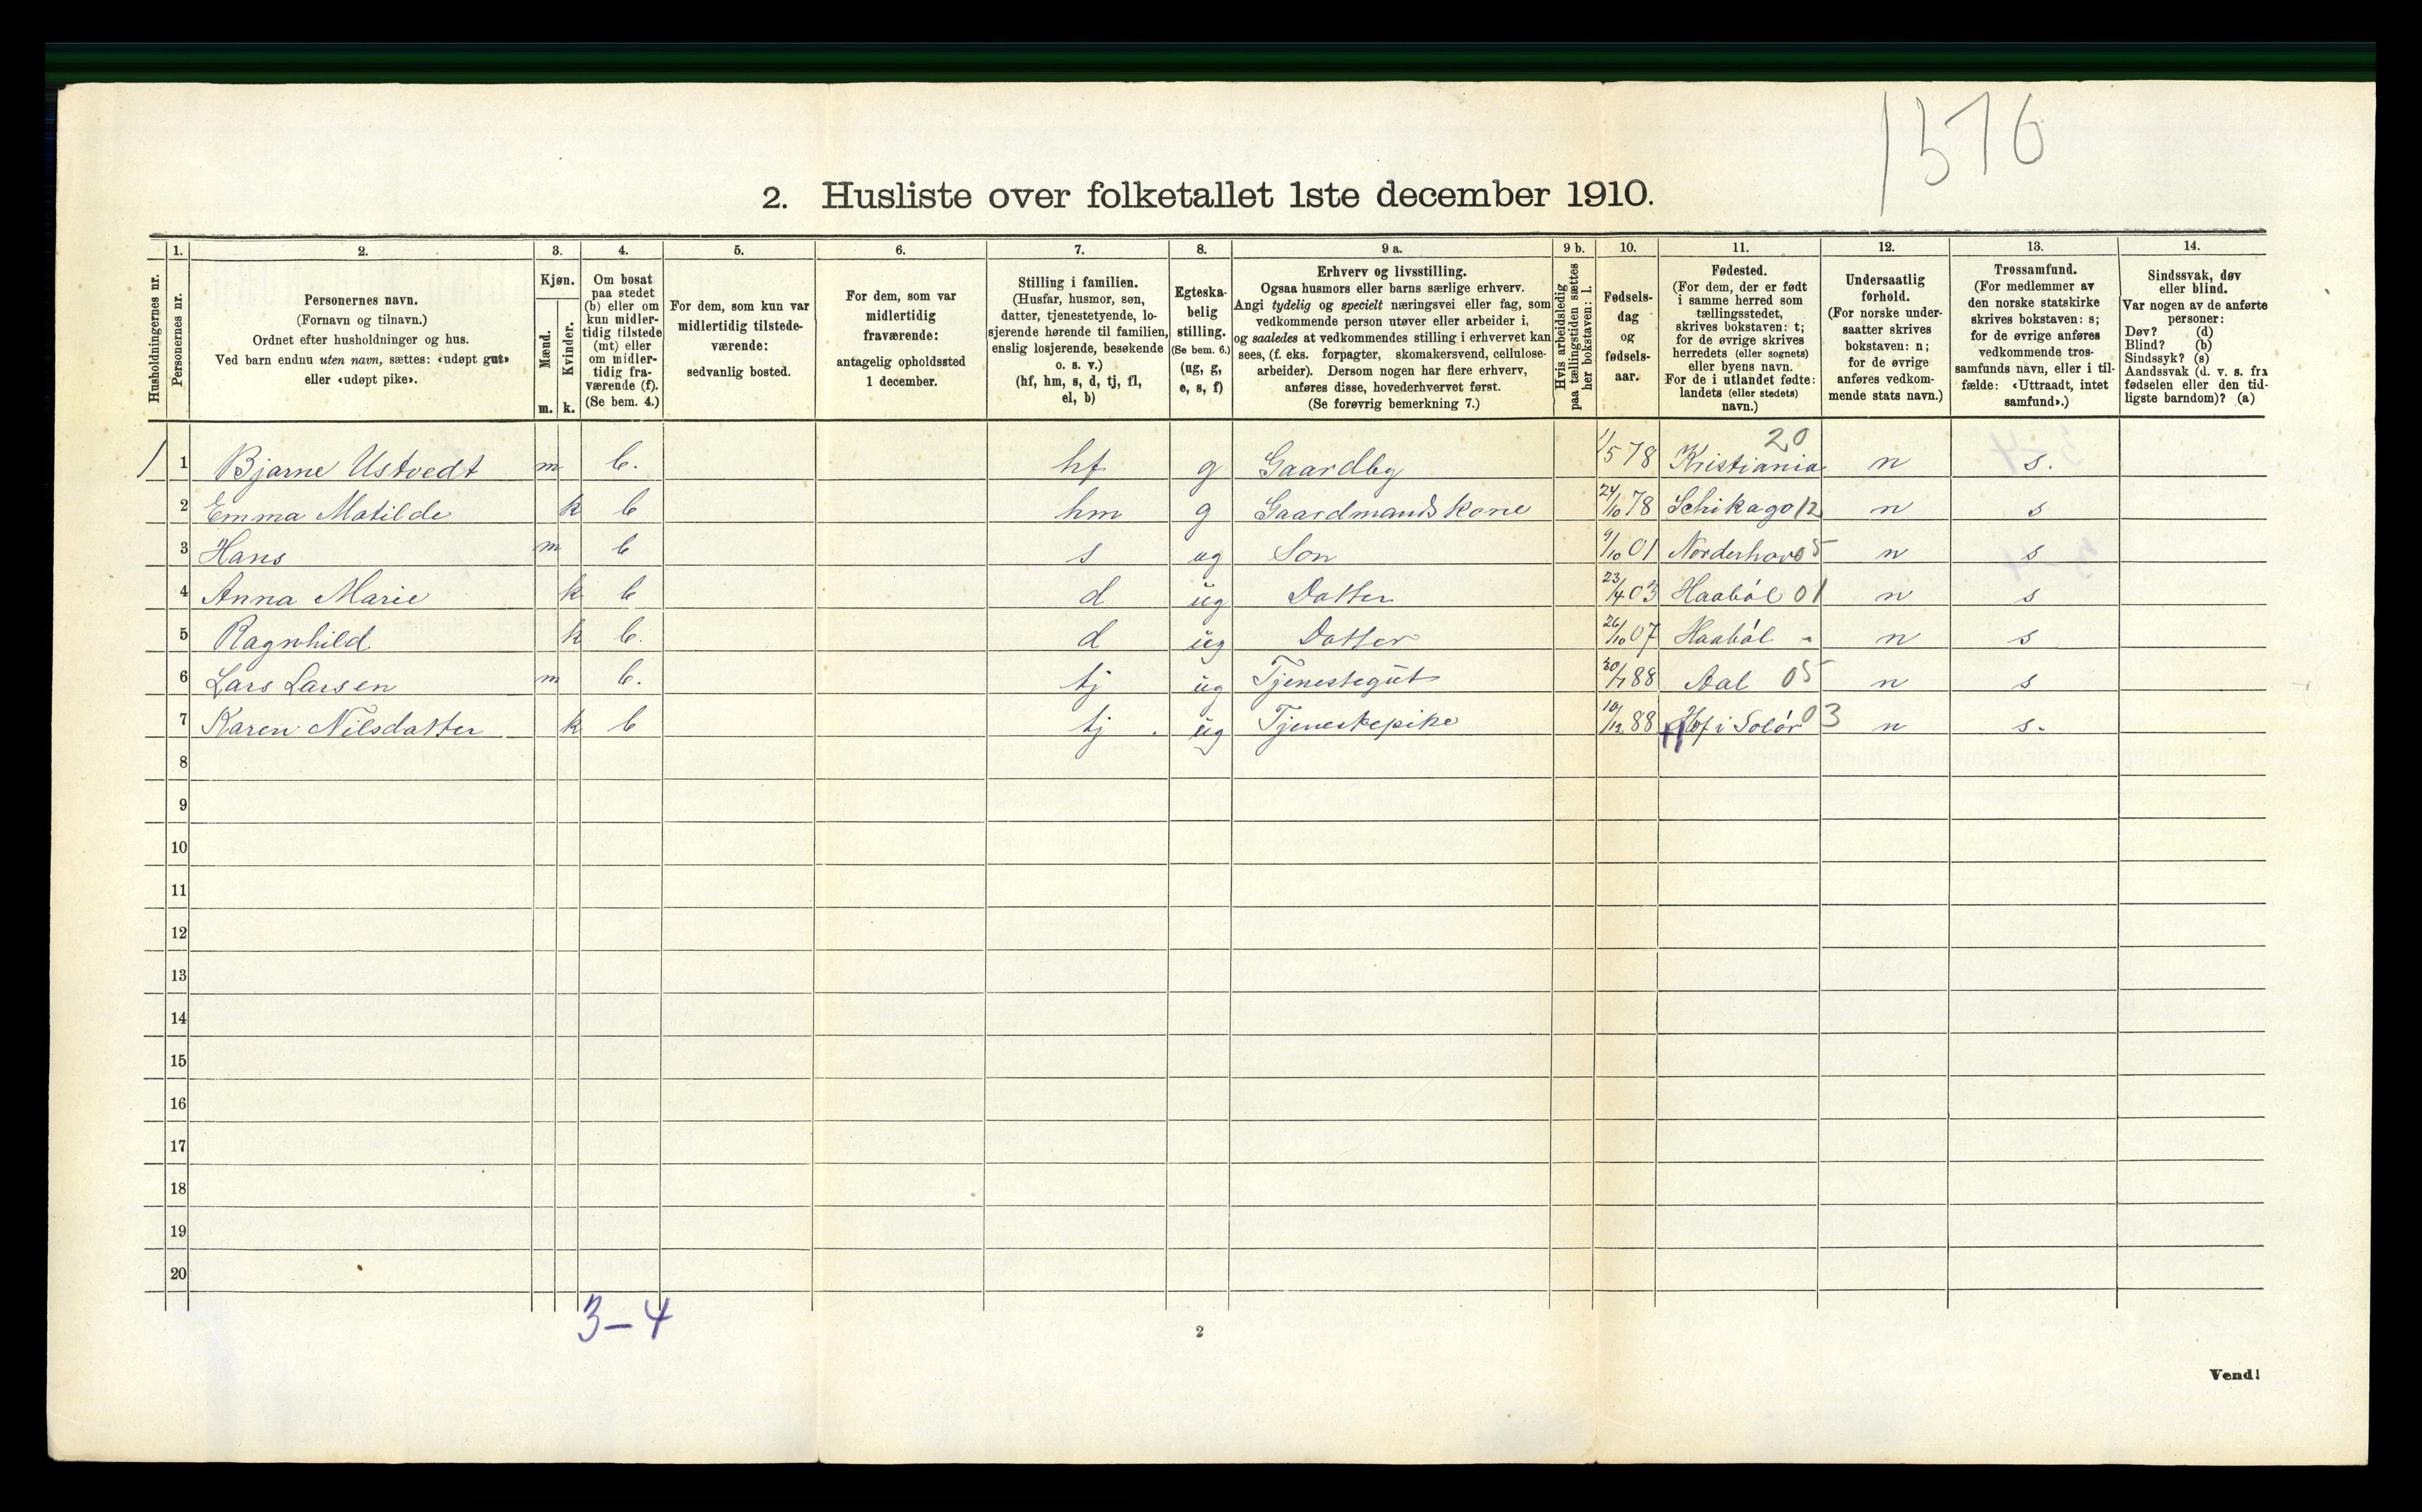 1576
2. Husliste over folketallet 1ste december 1910.
Husholdningernes nr.
1.
Personernes nr.
2.
Personernes navn.
(Fornavn og tilnavn.)
Ordnet efter husholdninger og hus.
Ved barn endnu uten navn, sættes: «udøpt gut»
eller «udøpt pike».
3.
Kjøn.
Mænd.
Kvinder.
m. k.
4.
Om bosat
paa stedet
(b) eller om
kun midler-
tidig tilstede
(mt) eller
om midler-
tidig fra-
værende (f).
(Se bem. 4.)
5.
For dem, som kun var
midlertidig tilstede-
værende:
sedvanlig bosted.
6.
For dem, som var
midlertidig
fraværende:
antagelig opholdssted
1 december.
7.
Stilling i familien.
(Husfar, husmor, søn,
datter, tjenestetyende, lo-
sjerende hørende til familien,
enslig losjerende, besøkende
o. s. v.)
(hf, hm, s, d, tj, fl,
el, b)
8.
Egteska-
belig
stilling.
(Se bem. 6.)
(ug, g,
e, s, f)
9 a.
Erhverv og livsstilling.
Ogsaa husmors eller barns særlige erhverv.
Angi tydelig og specielt næringsvei eller fag, som
vedkommende person utøver eller arbeider i,
og saaledes at vedkommendes stilling i erhvervet kan
sees, (f. eks. forpagter, skomakersvend, cellulose-
arbeider). Dersom nogen har flere erhverv,
anføres disse, hovederhvervet først.
(Se forøvrig bemerkning 7.)
9 b.
Hvis arbeidsledig
paa tællingstiden sættes
her bokstaven: l.
10.
Fødsels-
dag
og
fødsels-
aar.
11.
Fødested.
(For dem, der er født
i samme herred som
tællingsstedet,
skrives bokstaven: t;
for de øvrige skrives
herredets (eller sognets)
eller byens navn.
For de i utlandet fødte:
landets (eller stedets)
navn.)
12.
Undersaatlig
forhold.
(For norske under-
saatter skrives
bokstaven: n;
for de øvrige
anføres vedkom-
mende stats navn.)
13.
Trossamfund.
(For medlemmer av
den norske statskirke
skrives bokstaven: s;
for de øvrige anføres
vedkommende tros-
samfunds navn, eller i til-
fælde: «Uttraadt, intet
samfund».)
14.
Sindssvak, døv
eller blind.
Var nogen av de anførte
personer:
Døv? (d)
Blind? (b)
Sindssyk? (s)
Aandssvak (d. v. s. fra
fødselen eller den tid-
ligste barndom)? (a)
20
1 1 Bjarne Ustvedt m b. hf g Gaardbg 11/5 78 Kristiania n s.
2 Emma Matilde k b hm g Gaardmandskone 24/10 78 Schikago 12 n s
3 Hans m b s ug Son 9/10 01 Norderhov 05 n s
4 Anna Marie k b d ug Datter 23/4 03 Haabøl 01 n s
5 Ragnhild k b. d ug Datter 26/10 07 Haabøl - n s
6 Lars Larsen m b. tj ug Tjenestegut 30/7 88 Aal 05 n s
7 Karen Nilsdatter k b tj. ug Tjenestepike 10/12 88 Hof i Solør 03 n s.
8
9
10
11
12
13
14
15
16
17
18
19
20
3-4
2
Vend!